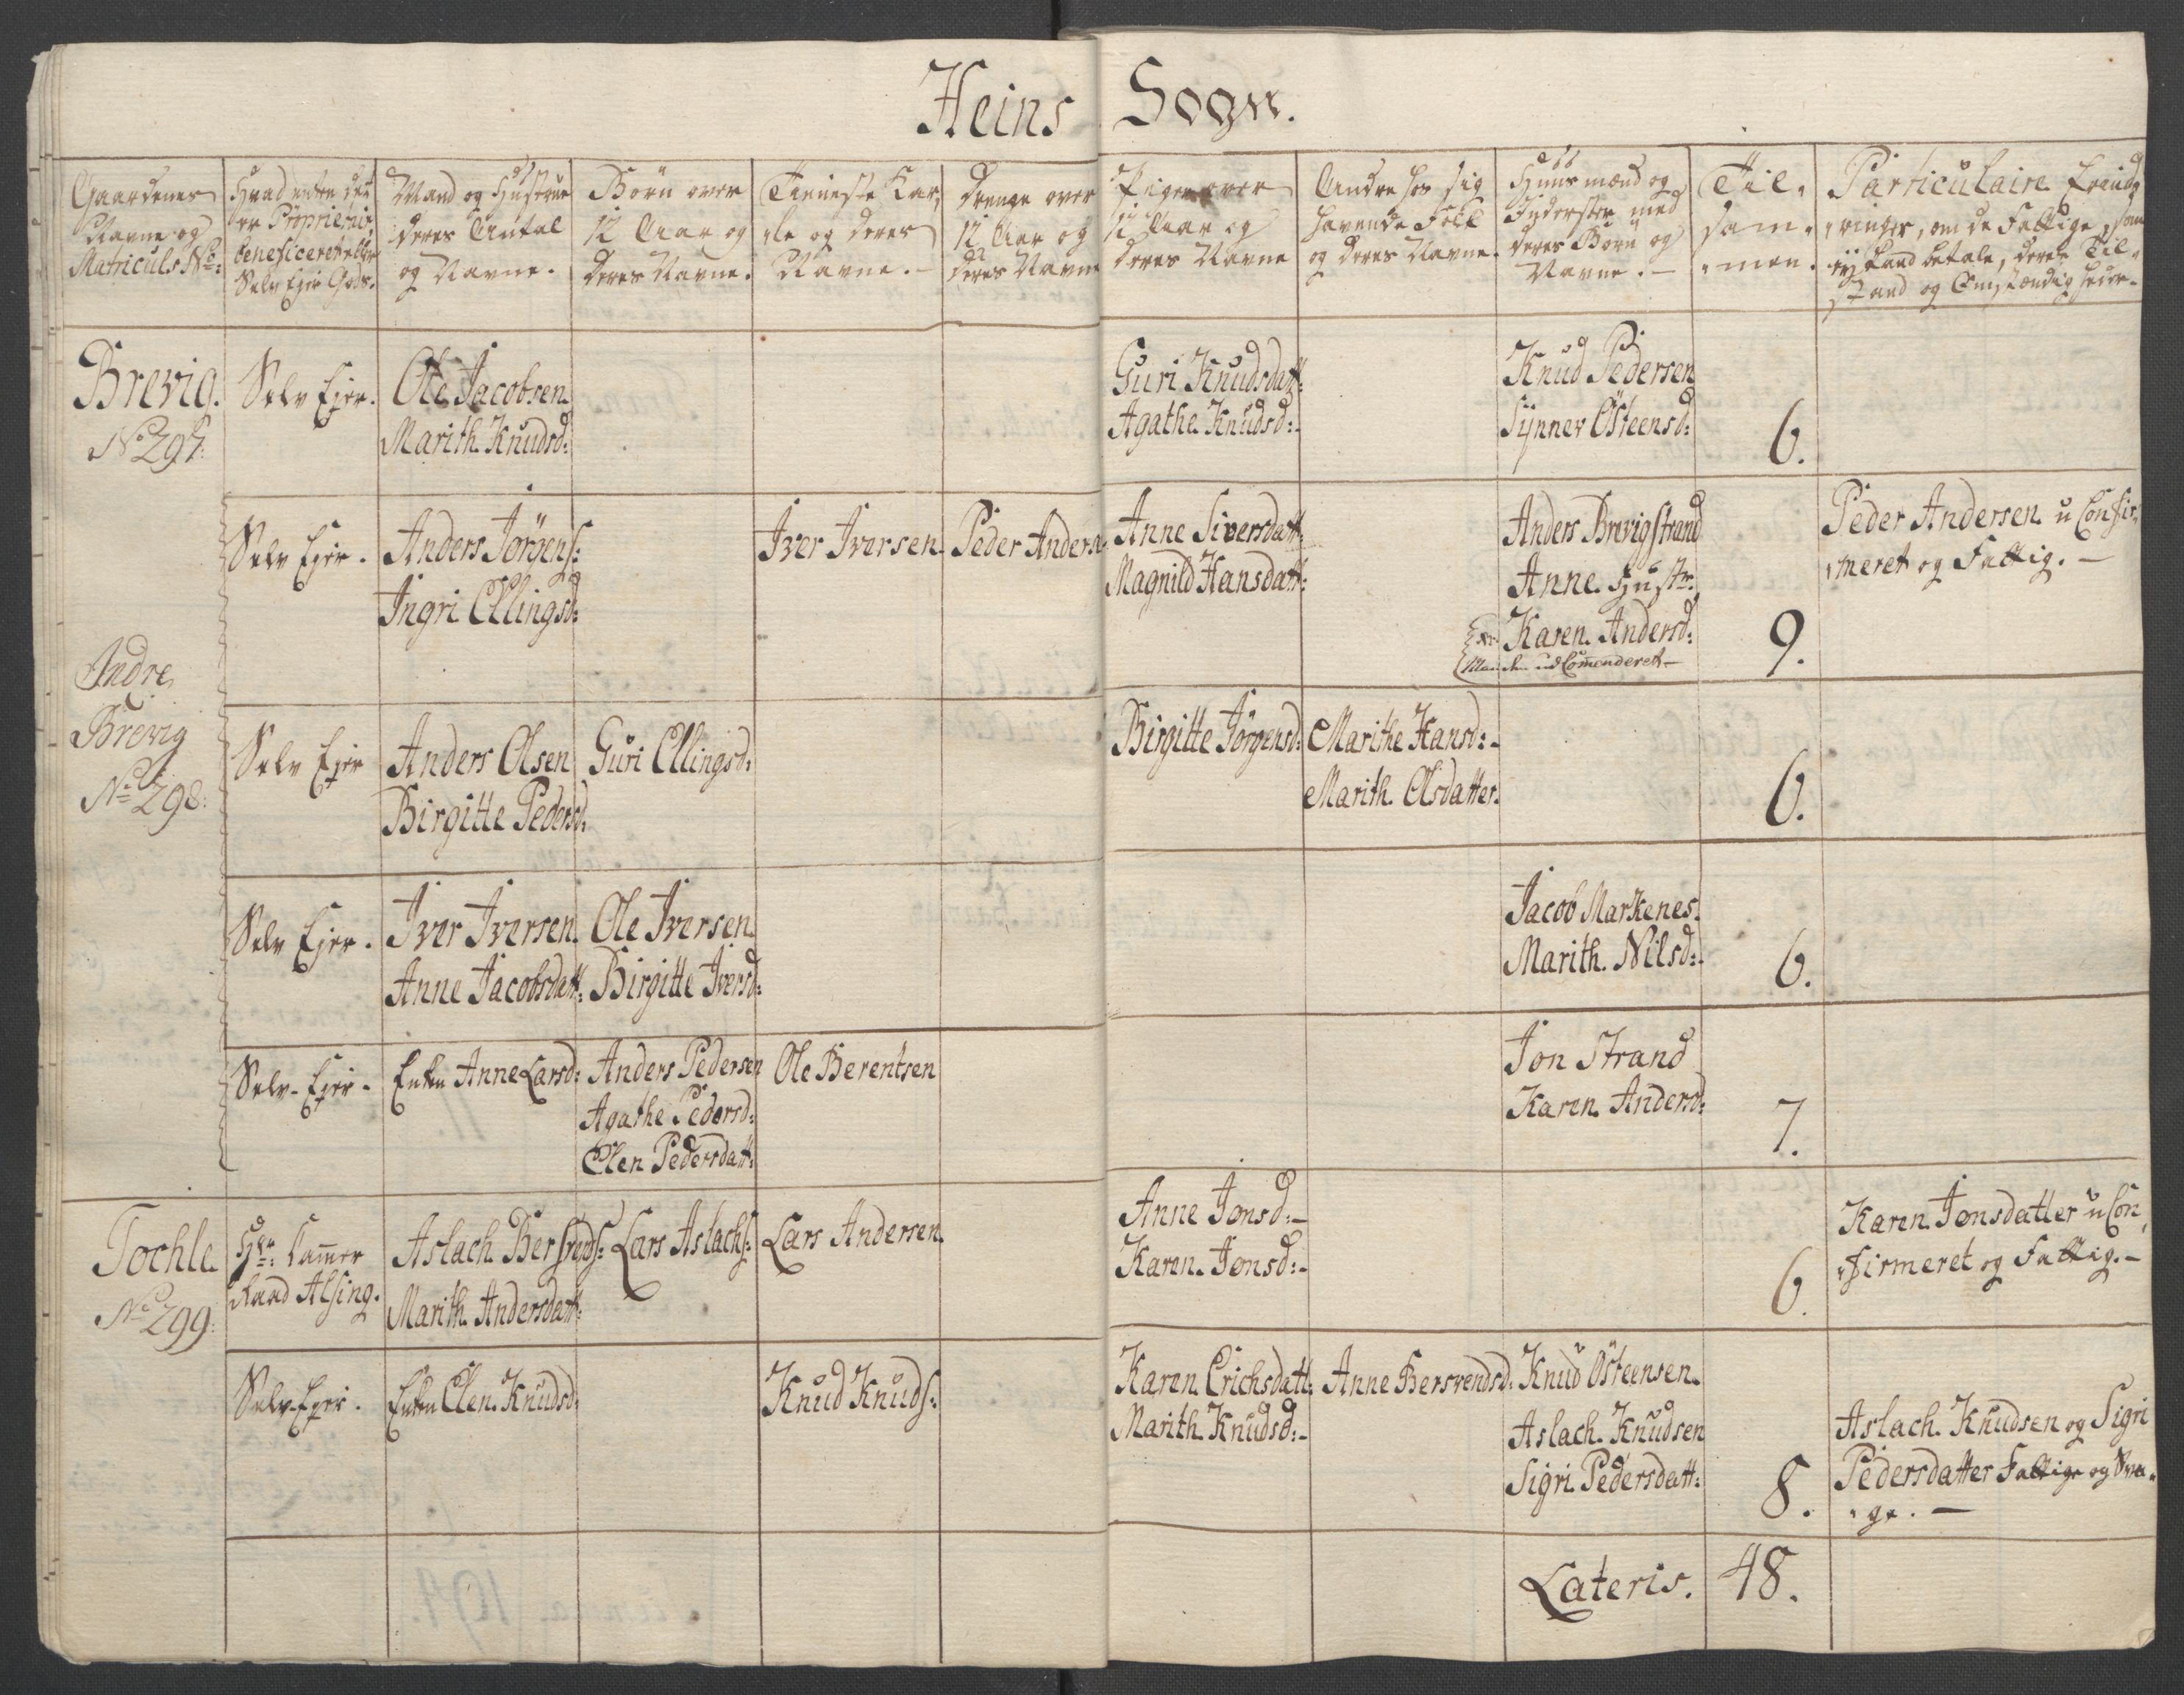 Heins Sogn.
Gaardenes
Navne og
Matriculs No:
Hvad enten det
er Proprietair,
beneficeret eller
Selv Ejer Gods.
Mand og Hustrue
deres Antal
og Navne.
Börn over
12 Aar og
deres Navne.
Tieneste Kar,
"le og deres
Navne. -
Drenge over
12 Aar og
deres Navne
Piger over
12 Aar og
deres Navne
Andre hos sig
havende Folk
og deres Navne.
Huusmænd og
Inderster med
deres Börn og
Navne. -
Til,
sam,
"men.
Particulaire Erind,
"ringer, om de Fattige, som
ej kand betale, deres Til,
stand og Omstændigheder.
Brevig.
No 297.
Selv Ejer.
Ole Jacobsen.
Marith. Knudsd:
Guri Knudsdatt:
Agathe Knudsd:-
Knud Pedersen
Synnev Østeensd:
6.
Indre
Brevig
No 298:
Selv Ejer.
Anders Jörgens:
Ingri Ellingsd:
Iver Iversen.
Peder Anders
Anne Siversdatt:
Magnild Hansdatt:
Anders Brevigstrand
Anne Hustr.
Karen Andersd:
Manden udCommenderet-
9.
Peder Andersen uConfir,
"meret og Fattig. -
Selv Ejer
Anders Olsen
Birgitte Pedersd:
Guri Ellingsd:
Birgitte Jörgensd:
Marithe Hansd:-
Marith. Olsdatter.
6.
Selv Ejer.
Iver Iversen.
Anne Jacobsdatt:
Ole Iversen.
Birgitte Iversd:
Jacob Markenes.
Marith. Nilsd:-
6.
Selv-Ejer.
Enken Anne Larsd:
Anders Pedersen
Agathe Pedersd:
Elen Pedersdatt:
Ole Berentsen
Jon Strand
Karen Andersd:
7.
Tochle
No 299:
Hr: Cammer
Raad Alsing.
Aslach Bersvends:
Marith Andersdatt:
Lars Aslachs:
Lars Andersen.
Anne Jonsd:-
Karen Jonsd:-
6.
Karen Jonsdatter uCon,
"firmeret og Fattig.-
Selv-Ejer.
Enken Elen Knudsd:
Knud Knuds:
Karen Erichsdatt:
Marith. Knudsd:-
Anne Bersvendsd:
Knud Østeensen.
Aslach. Knudsen
Sigri Pedersdatt:
8.
Aslach. Knudsen og Sigri
Pedersdatter Fattige og Svæ,
"ge. -
Lateris. 48.